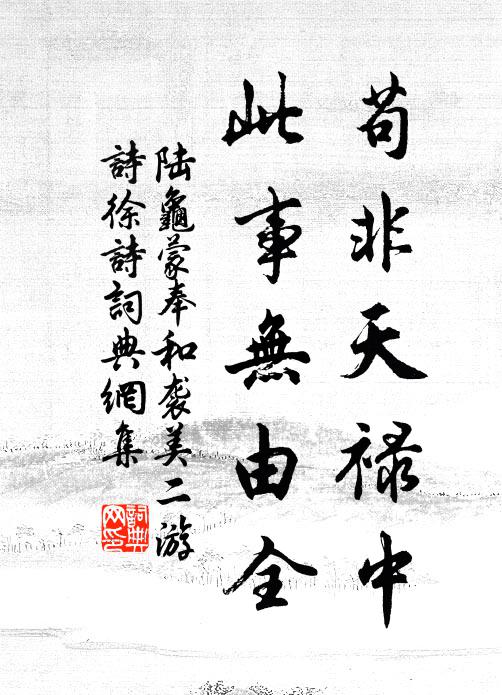 苟非天祿中
此事無由全
陆龜蒙奉和袭美二游
詩徐詩詞典網集
詞典网印